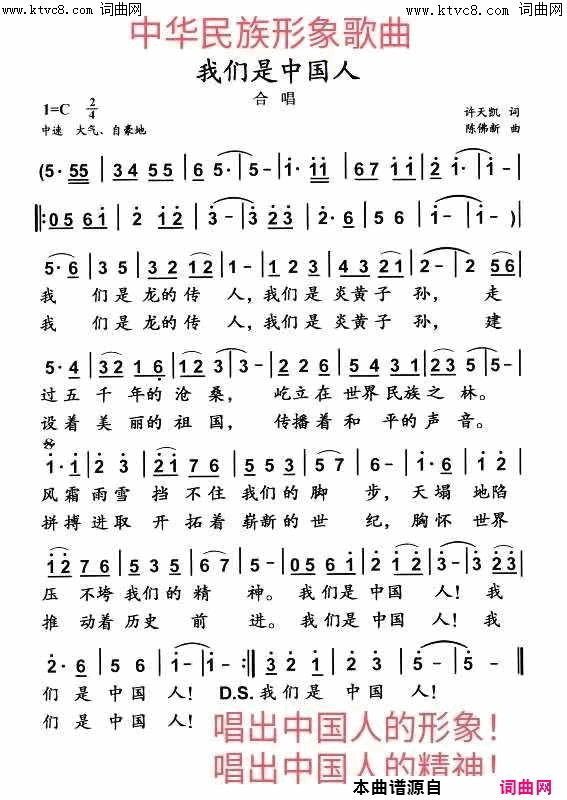 www.ktvc8.com 词曲网 www.ktvc8.com 词曲网
中华民族形象歌曲
我们是中国人
合 唱
1=C 2/4
许天凯 词
中速 大气、自豪地
陈佛新 曲
(5· 55 | 345 55 | 5 - | 5 - | i· i | 67 1i | 2 i· | i - |
‖: 056i | 2 i2 | 3 - | 3· 23 | 2· 6 | 56 | i - | i - ) |
5· 6 | 35 | 32 12 | 1 - | 1· 23 | 43 21 | 2 - | 2 56 |
我 们是 龙的 传 人, 我们是 炎黄子 孙, 走
我 们是 龙的 传 人, 我们是 炎黄子 孙, 建
5· 4 | 32 16 | 23 | 3 - | 226 | 556 | 1 123 | 5 - |
过五 千 年的沧 桑, 屹立在 世界民族之 林。
设着 美 丽的祖 国, 传播着 和 平的声 音。
i· i | 23 | 2i 76 | 56 | 335 | 67 | 6 - | i 2 3 |
风霜雨雪 挡 不住 我们的脚 步, 天塌 地陷
拼搏进取 开 拓着 崭新的世 纪, 胸怀 世界
i2 76 | 335 | 67 | 5 - | 056i | 2 i2 | 3 - | 3· 23 |
压 不垮我们的精 神。 我们是 中国 人! 我
推 动着历史 前 进。 我们是 中国 人! 我
2· 6 | 56 | i - | i - :‖ 032i | 2 5 | i - | i - ‖
们 是 中国 人! D.S.我们是 中国 人!
们 是 中国 人!
唱出中国人的形象!
唱出中国人的精神!
本曲谱源自 词曲网